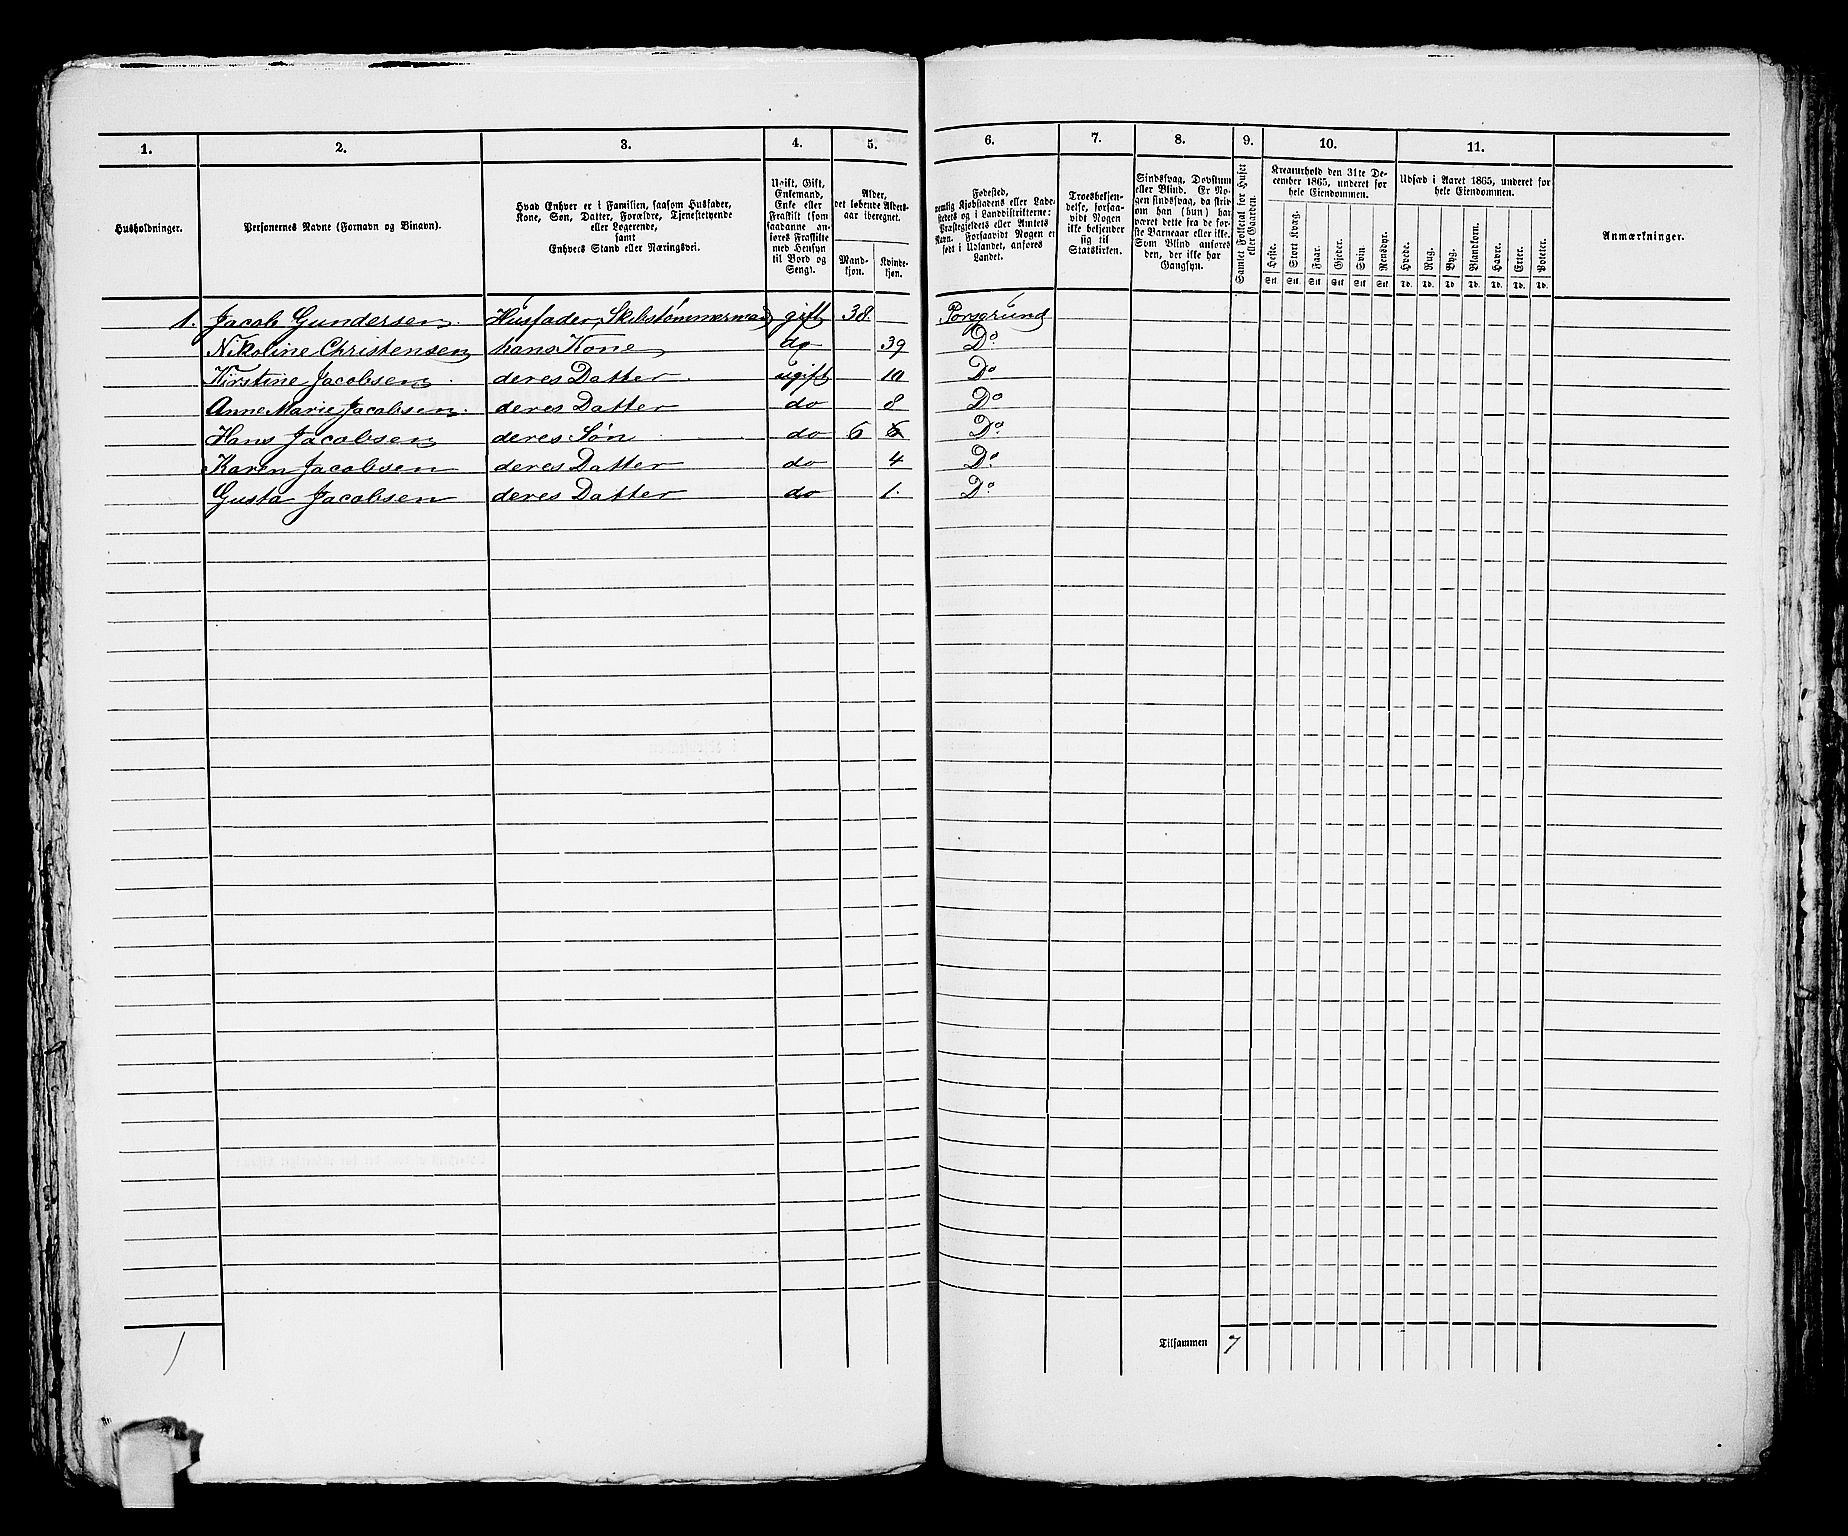 1. 2. 3. 4. 5. 6. 7. 8. 9. 10. 11.
Husholdninger.
Personernes Navne (Fornavn og Binavn).
Hvad Enhver er i Familien, saasom Husfader,
Kone, Søn, Datter, Forældre, Tjenestetyende
eller Logerende,
samt
Enhvers Stand eller Næringsvei.
Ugift, Gift,
Enkemand,
Enke eller
Fraskilt (som
saadanne an-
føres Fraskilte
med Hensyn
til Bord og
Seng).
Alder,
det løbende Alders-
aar iberegnet.
Mand-
kjøn.
Kvinde-
kjøn.
Fødested,
nemlig Kjøbstadens eller Lade-
stedets og i Landdistrikterne:
Præstegjeldets eller Amtets
Navn. Forsaavidt Nogen er
født i Udlandet, anføres
Landet.
Troesbekjen-
delse, forsaa-
vidt Nogen
ikke bekjender
sig til
Statskirken.
Sindssvag, Døvstum
eller Blind. Er No-
gen sindssvag, da skriv
om han (hun) har
været dette fra de før-
ste Barneaar eller ikke.
Som Blind anføres
den, der ikke har
Gangsyn.
Samlet Folketal for Huset
eller Gaarden.
Kreaturhold den 31te De-
cember 1865, underet for
hele Eiendommen.
Heste. Stort Kvæg. Faar. Gjeder. Svin. Rensdyr.
Stk Stk Stk Stk Stk Stk
Udsæd i Aaret 1865, underet for
hele Eiendommen.
Hvede. Rug. Byg. Blandkorn. Havre. Erter. Poteter.
Td. Td. Td. Td. Td. Td. Td.
Anmærkninger.
1. Jacob Gundersen Husfader, Skibstømmermand gift 38. Porsgrund
Nikoline Christensen hans Kone do 39 Do
Kirstine Jacobsen deres Datter ugift 10 Do
Anne Marie Jacobsen. deres Datter do 8 Do
Hans Jacobsen deres Søn do 6 6 Do
Karen Jacobsen deres Datter do 4 Do
Gusta Jacobsen deres Datter do 1. Do
1 Tilsammen 7